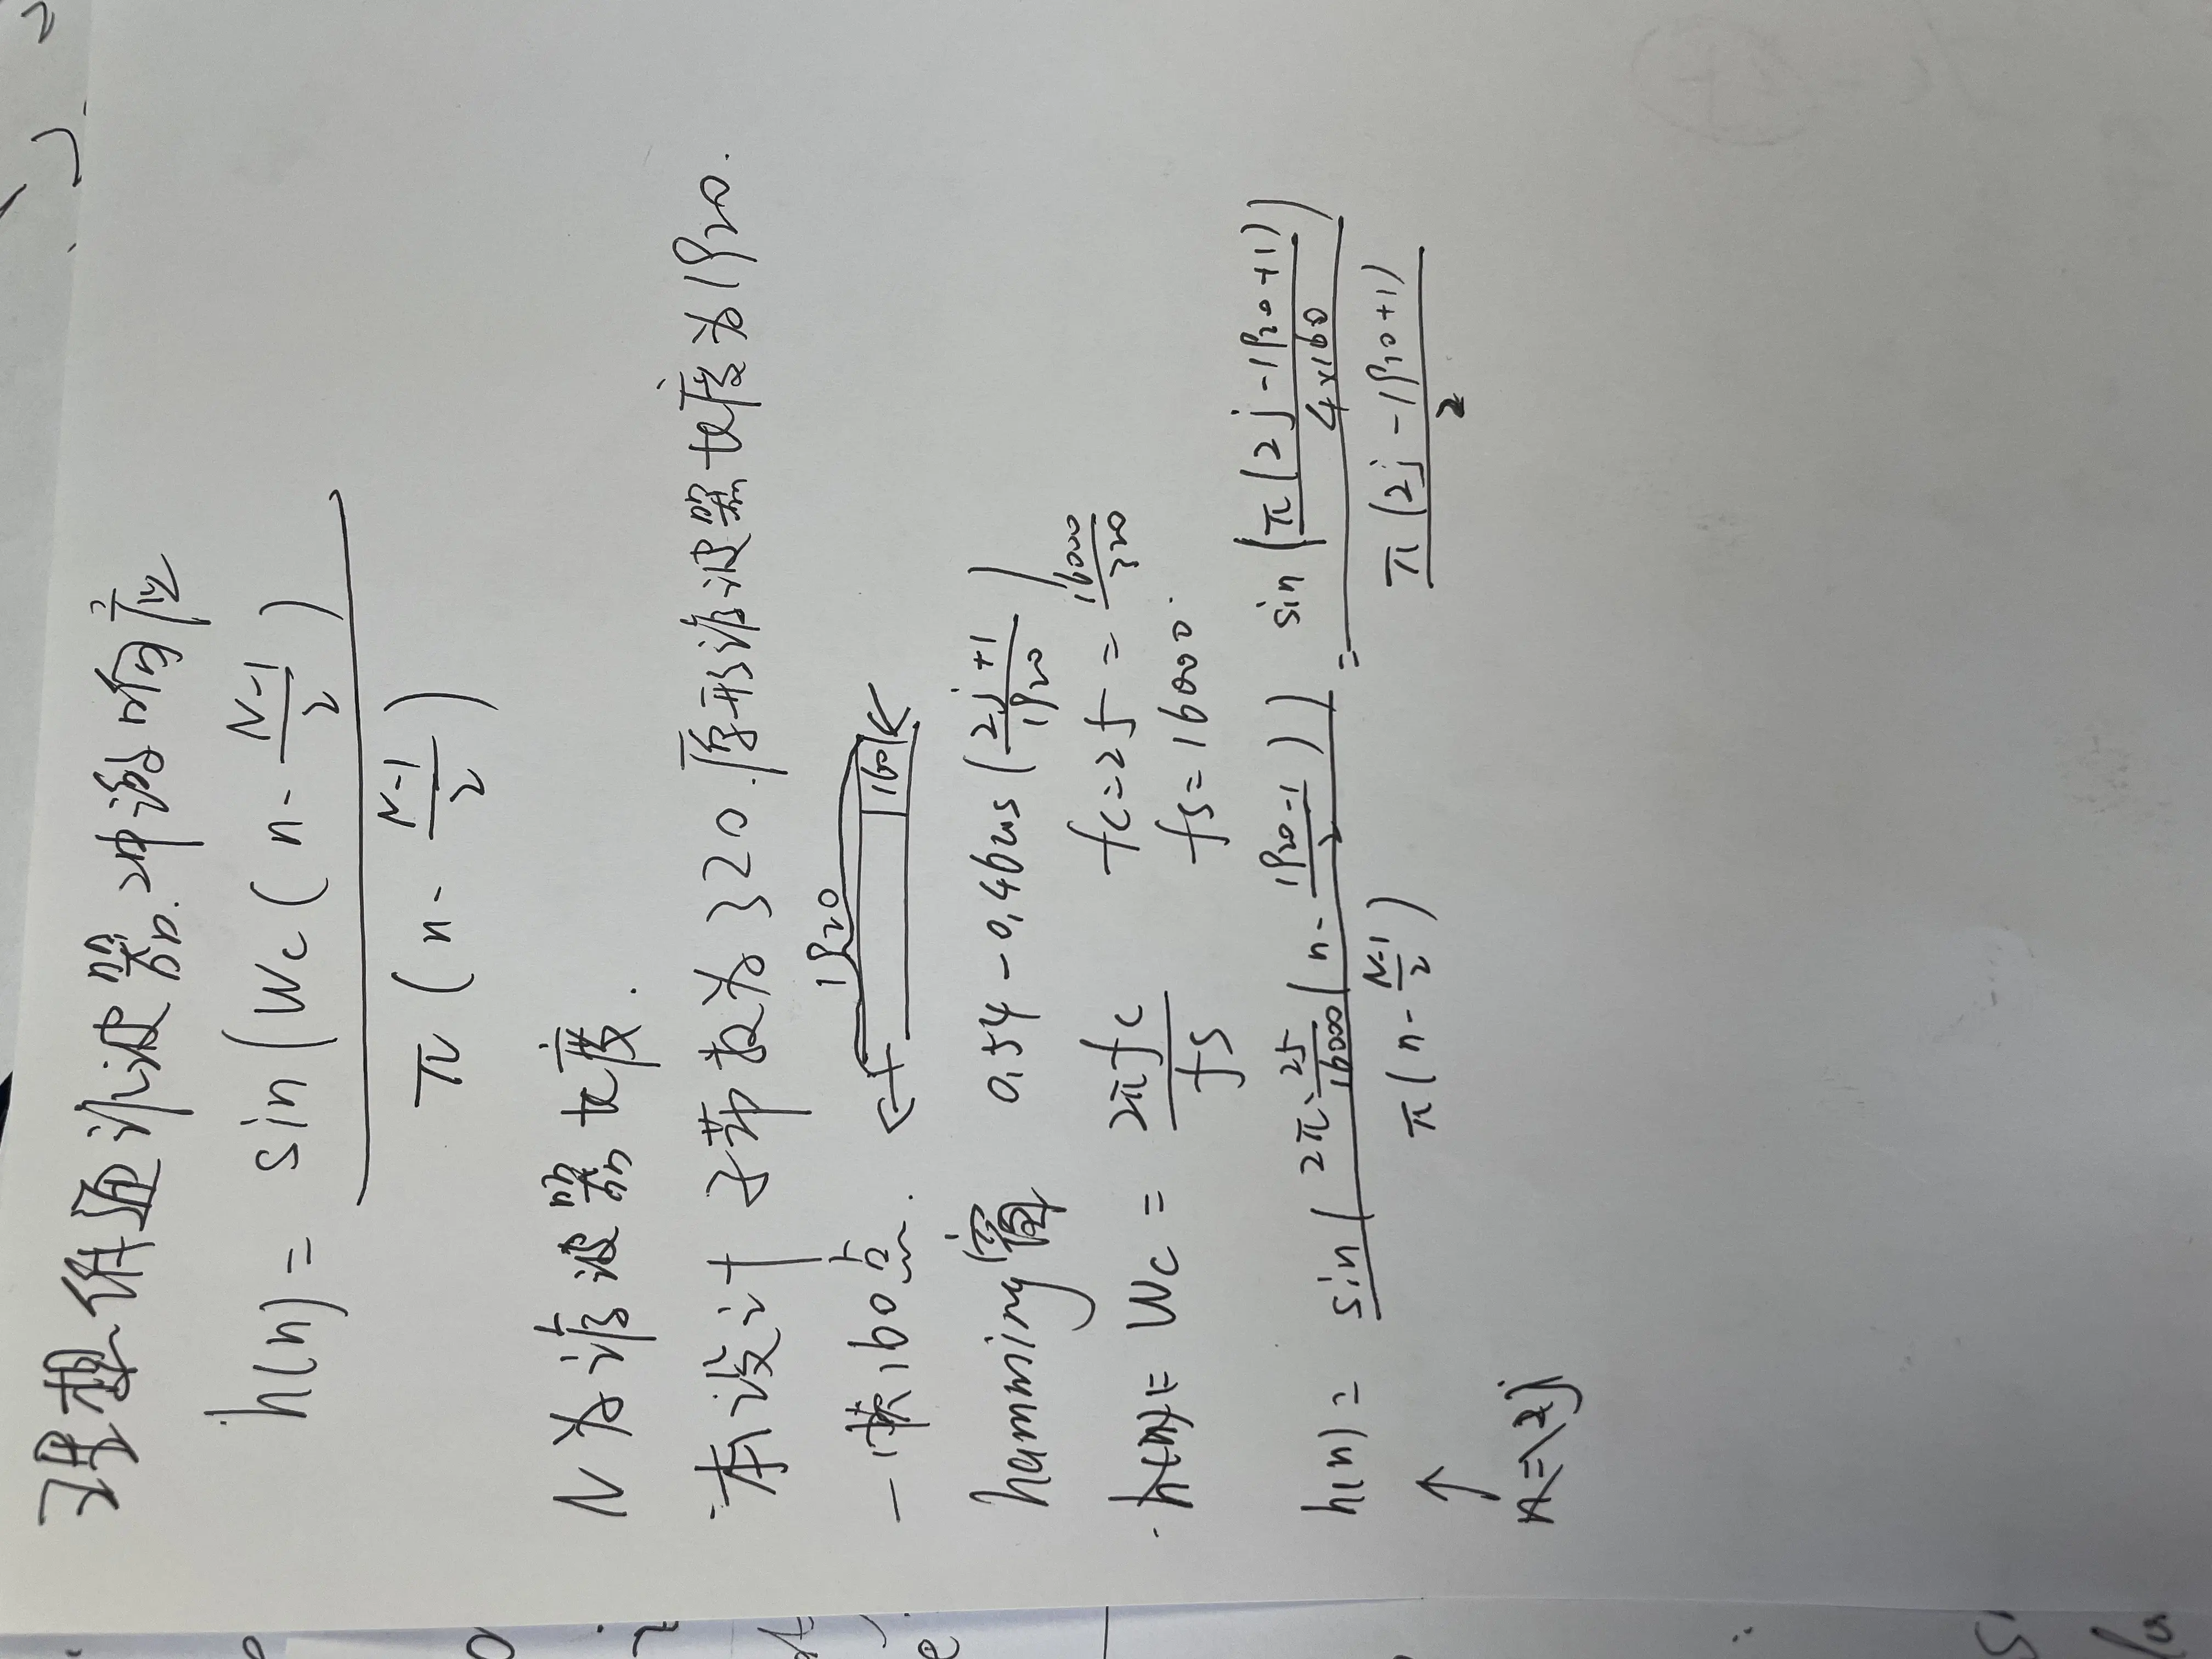 理想低通滤波器.冲激响应
h(n) = sin(Wc(n - N-1/2)) / π(n - N-1/2)
N为滤波器长度.
本设计子带数为320.原形滤波器长度为1920.
一帧160点. 1920 160
hamming窗 0.54-0.46cos(2j+1/1920)
Wc = 2πfc/fs fc=25=16000/320
fs=16000.
h(n) = sin(2π·25/16000(n - 1920-1/2)) / π(n - N-1/2) = sin(π(2j-1920+1)/4×160) / π(2j-1920+1)/2
↑